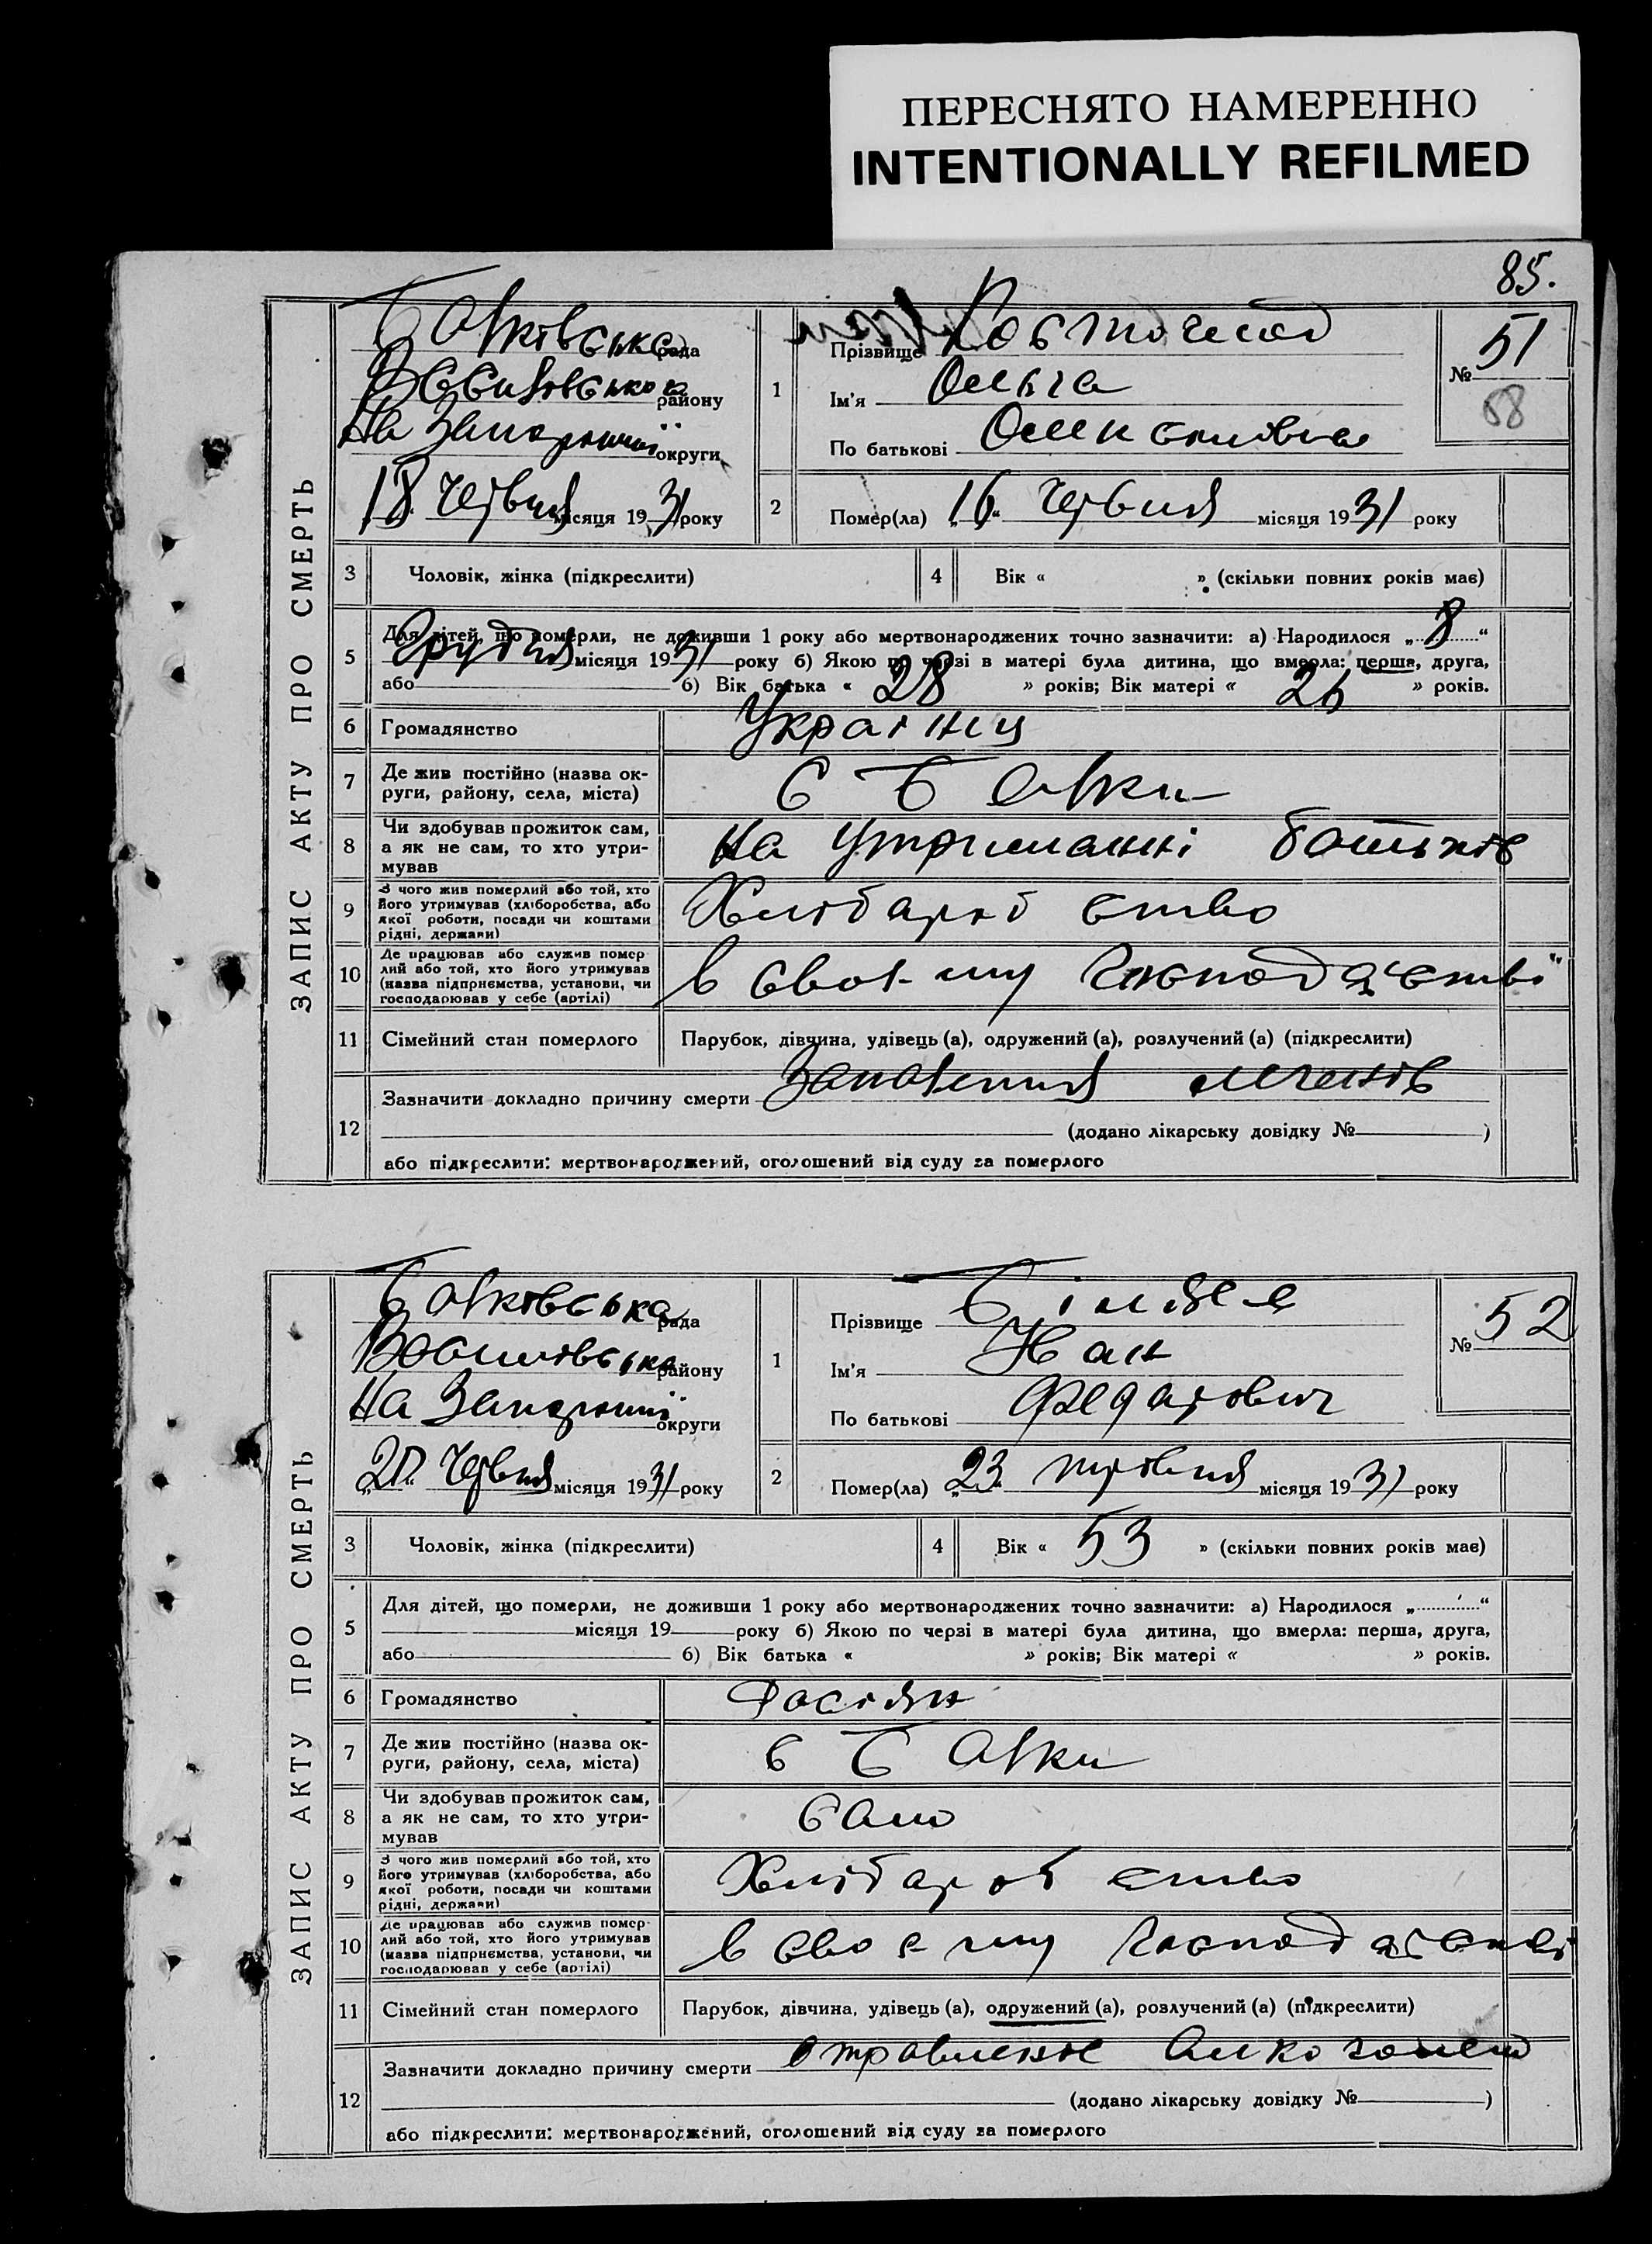 ПЕРЕСНЯТО НАМЕРЕННО
INTENTIONALLY REFILMED
85.
ЗАПИС АКТУ ПРО СМЕРТЬ
Балківська рада
Василівська району
На Запоріжжі округи
18 Червня місяця 1931 року
1
Прізвище
Ім'я Ольга
По батькові
№ 51
58
2 Помер(ла) „16“ Червня місяця 1931 року
3 Чоловік, жінка (підкреслити)
4 Вік « » (скільки повних років має)
5 Для дітей, що померли, не доживши 1 року або мертвонароджених точно зазначити: а) Народилося „8“
Грудня місяця 1931 року б) Якою по черзі в матері була дитина, що вмерла: перша, друга,
або б) Вік батька « 28 » років; Вік матері « 26 » років.
6 Громадянство Українц
7 Де жив постійно (назва ок-
руги, району, села, міста) С Балки
8 Чи здобував прожиток сам,
а як не сам, то хто утри-
мував На утриманні батьків
9 З чого жив померлий або той, хто
його утримував (хліборобства, або
якої роботи, посади чи коштами
рідні, держави) Хлібаробство
10 Де працював або служив помер-
лий або той, хто його утримував
(назва підприємства, установи, чи
господарював у себе (артілі) в своєму господарстві
11 Сімейний стан померлого Парубок, дівчина, удівець (а), одружений (а), розлучений (а) (підкреслити)
12 Зазначити докладно причину смерти Запалення легенів
(додано лікарську довідку № )
або підкреслити: мертвонароджений, оголошений від суду за померлого
ЗАПИС АКТУ ПРО СМЕРТЬ
Балківська рада
Василівська району
На Запоріжжі округи
„20“ Червня місяця 1931 року
1
Прізвище
Ім'я
По батькові Федарович
№ 52
2 Помер(ла) „23“ травня місяця 1931 року
3 Чоловік, жінка (підкреслити)
4 Вік « 53 » (скільки повних років має)
5 Для дітей, що померли, не доживши 1 року або мертвонароджених точно зазначити: а) Народилося „ “
місяця 19 року б) Якою по черзі в матері була дитина, що вмерла: перша, друга,
або б) Вік батька « » років; Вік матері « » років.
6 Громадянство Расіян
7 Де жив постійно (назва ок-
руги, району, села, міста) с Балки
8 Чи здобував прожиток сам,
а як не сам, то хто утри-
мував Сам
9 З чого жив померлий або той, хто
його утримував (хліборобства, або
якої роботи, посади чи коштами
рідні, держави) Хлібаробство
10 Де працював або служив помер-
лий або той, хто його утримував
(назва підприємства, установи, чи
господарював у себе (артілі) в своєму господарстві
11 Сімейний стан померлого Парубок, дівчина, удівець (а), одружений (а), розлучений (а) (підкреслити)
12 Зазначити докладно причину смерти отравленіє Алкоголем
(додано лікарську довідку № )
або підкреслити: мертвонароджений, оголошений від суду за померлого